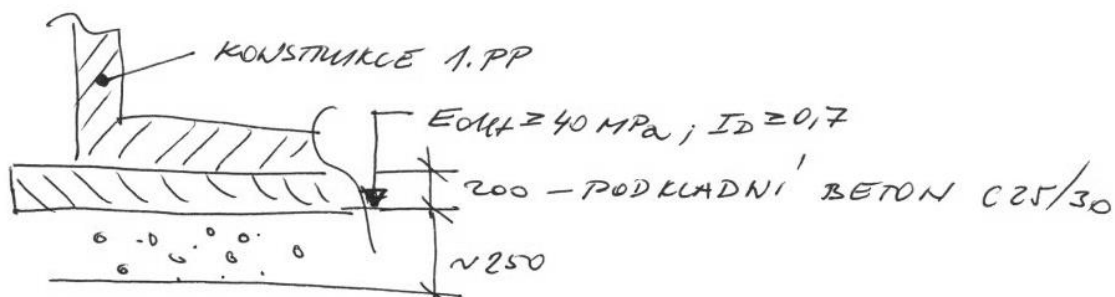 KONSTRUKCE 1.PP
Edef ≥ 40 MPa; ID ≥ 0,7
200 – PODKLADNÍ BETON C25/30
~250